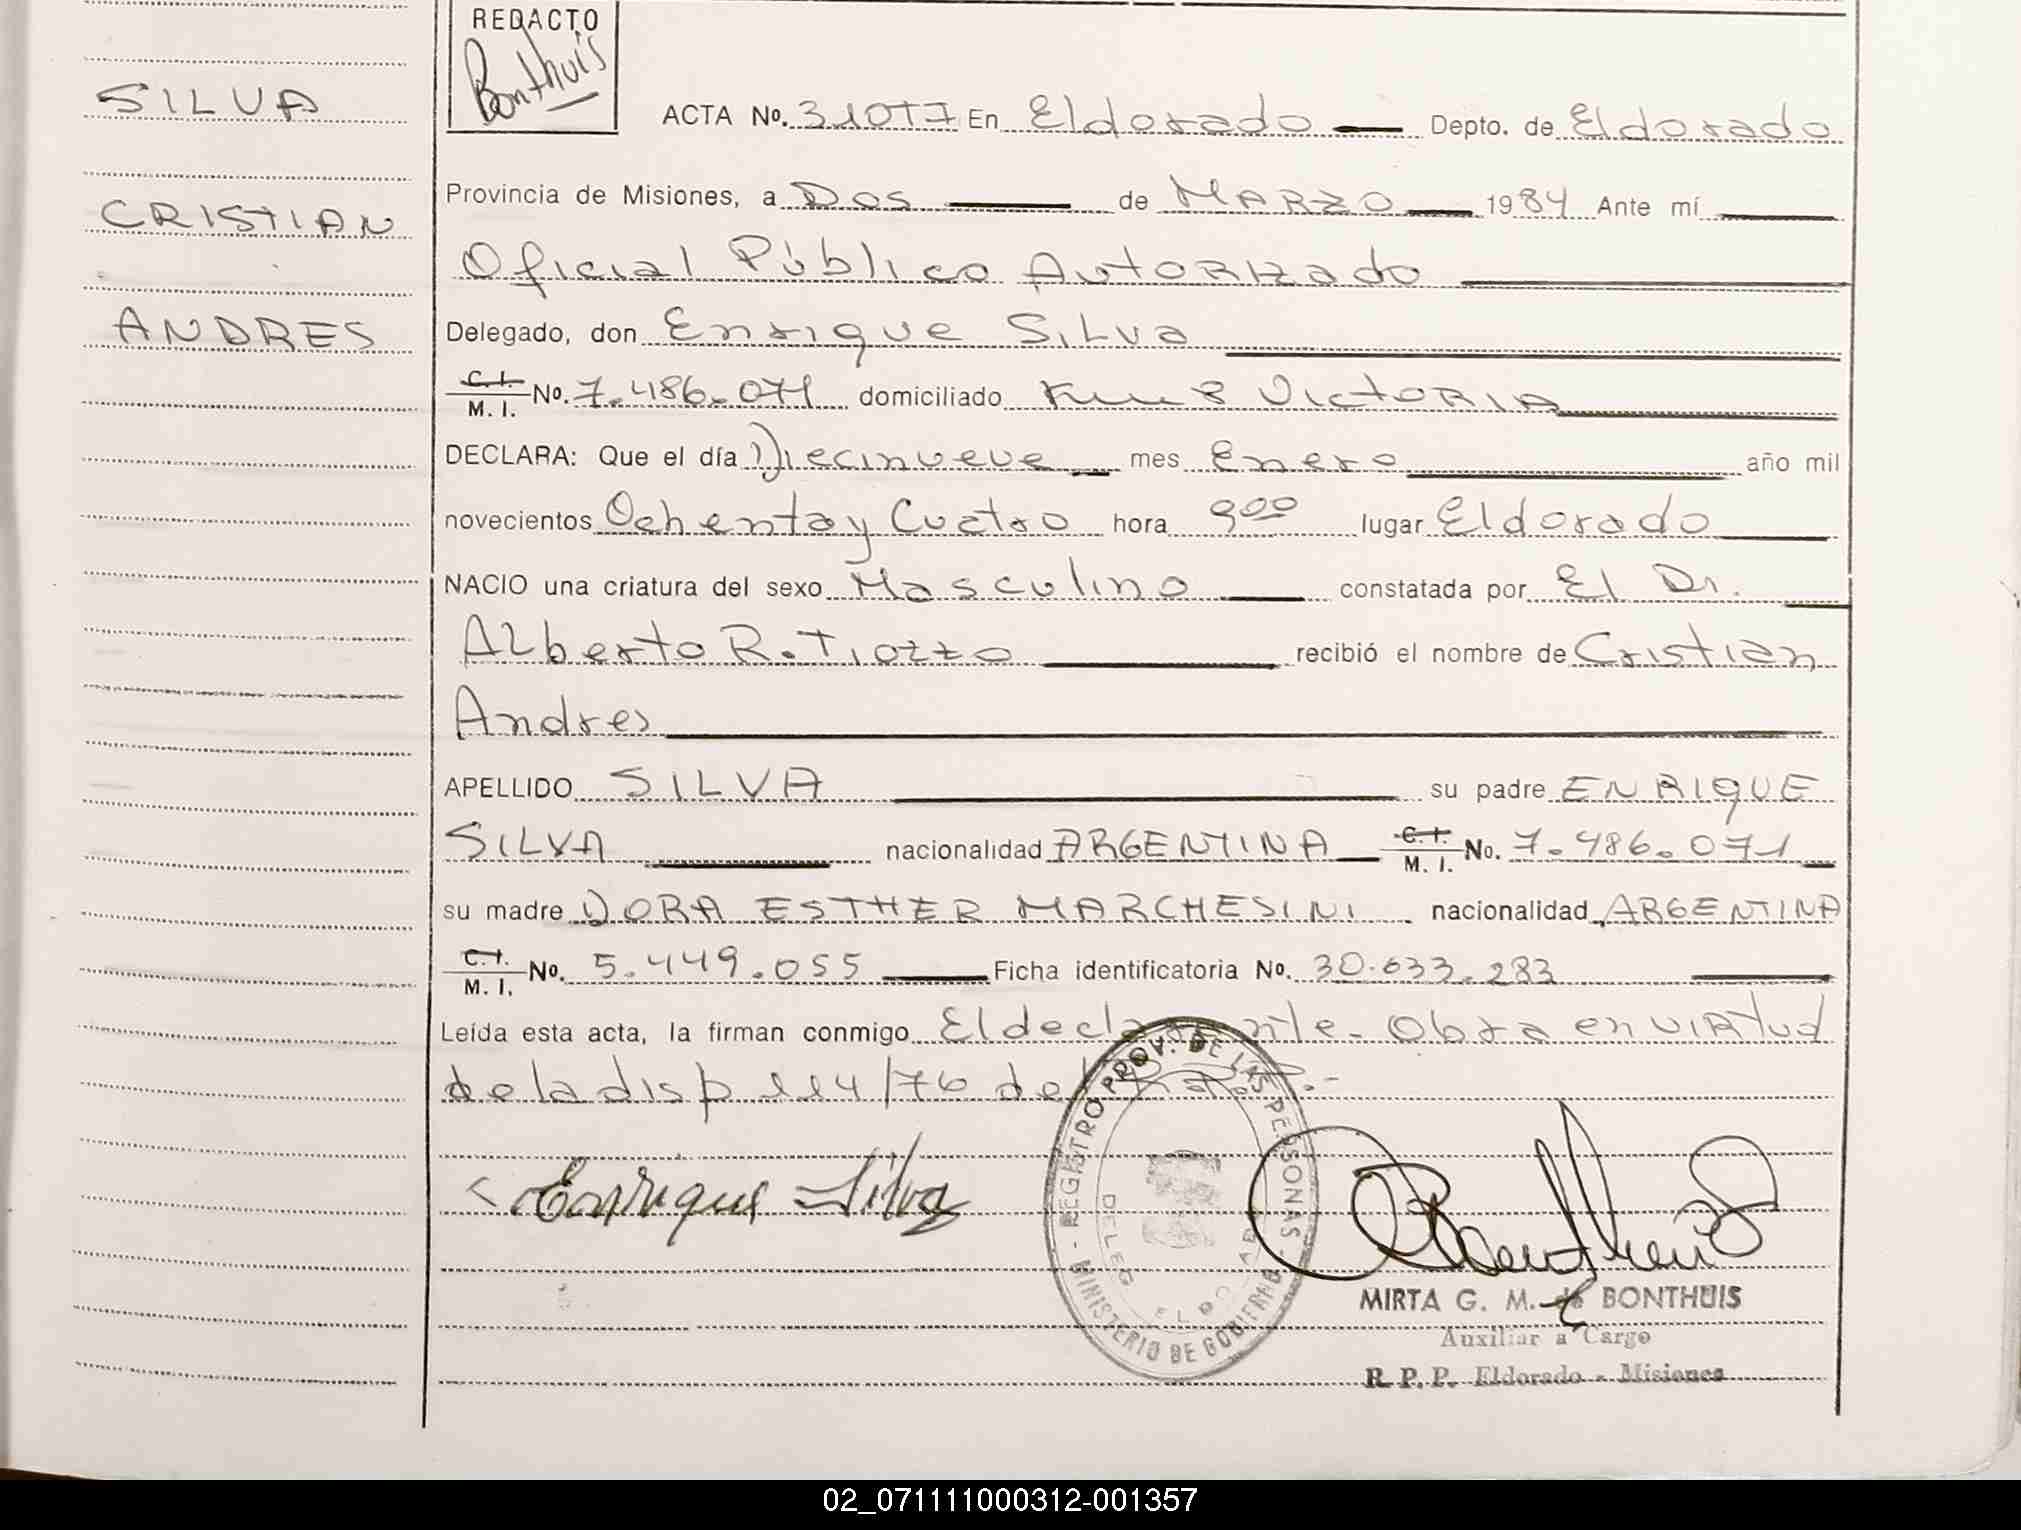 REDACTO
Bonthuis
SILVA
CRISTIAN
ANDRES
ACTA No. 310T7 En Eldorado Depto. de Eldorado
Provincia de Misiones, a Dos de MARZO 1984 Ante mí
Oficial Público Autorizado
Delegado, don Enrique Silva
C.I. M. I. No. 7.486.071 domiciliado Km 8 VICTORIA
DECLARA: Que el día Diecinueve mes Enero año mil
novecientos Ochenta y Cuatro hora 900 lugar Eldorado
NACIO una criatura del sexo Masculino constatada por El Dr.
Alberto R. Tiozzo recibió el nombre de Cristian
Andres
APELLIDO SILVA su padre ENRIQUE
SILVA nacionalidad ARGENTINA C.I. M. I. No. 7.486.071
su madre DORA ESTHER MARCHESINI nacionalidad ARGENTINA
C.I. M. I. No. 5.449.055 Ficha identificatoria No. 30.633.283
Leída esta acta, la firman conmigo El declarante - Obra en virtud
de la disp 114/76 del R.P.P.-
REGISTRO PROV. DE LAS PERSONAS - MINISTERIO DE GOBIERNO -
Enrique Silva
Bonthuis
MIRTA G. M. de BONTHUIS
Auxiliar a Cargo
R. P. P. Eldorado - Misiones
02_071111000312-001357